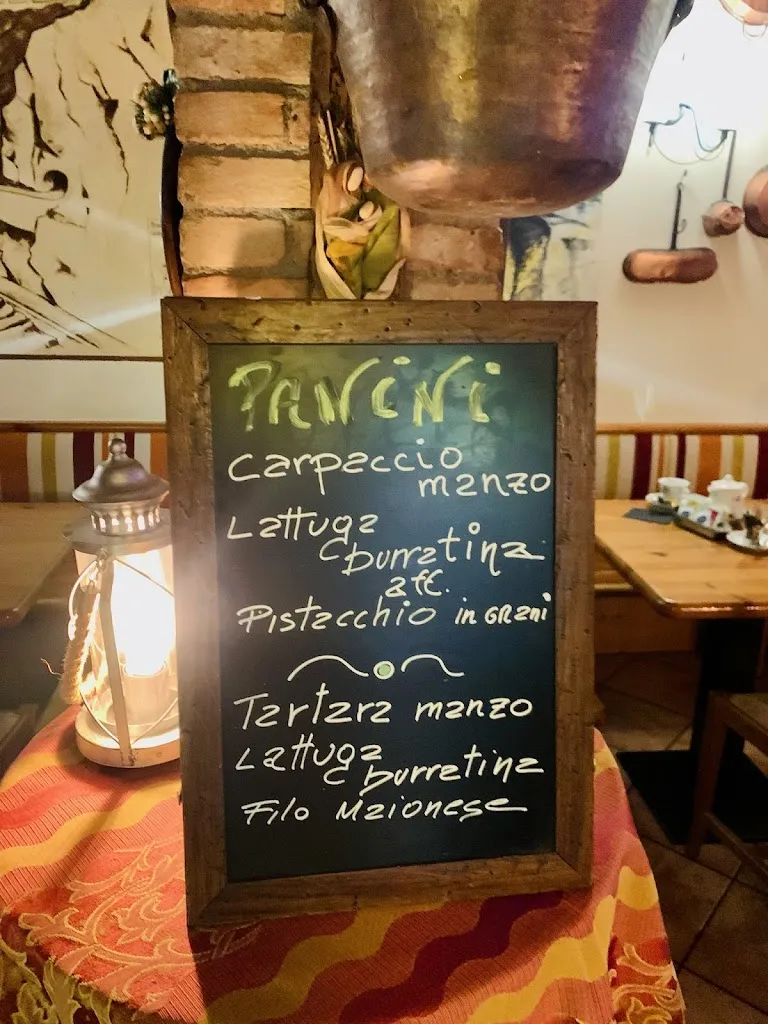 PANiNi
Carpaccio
manzo
Lattuga
e burratina
aff.
Pistacchio in GRani
Tartara manzo
Lattuga
e burratina
Filo Maionese